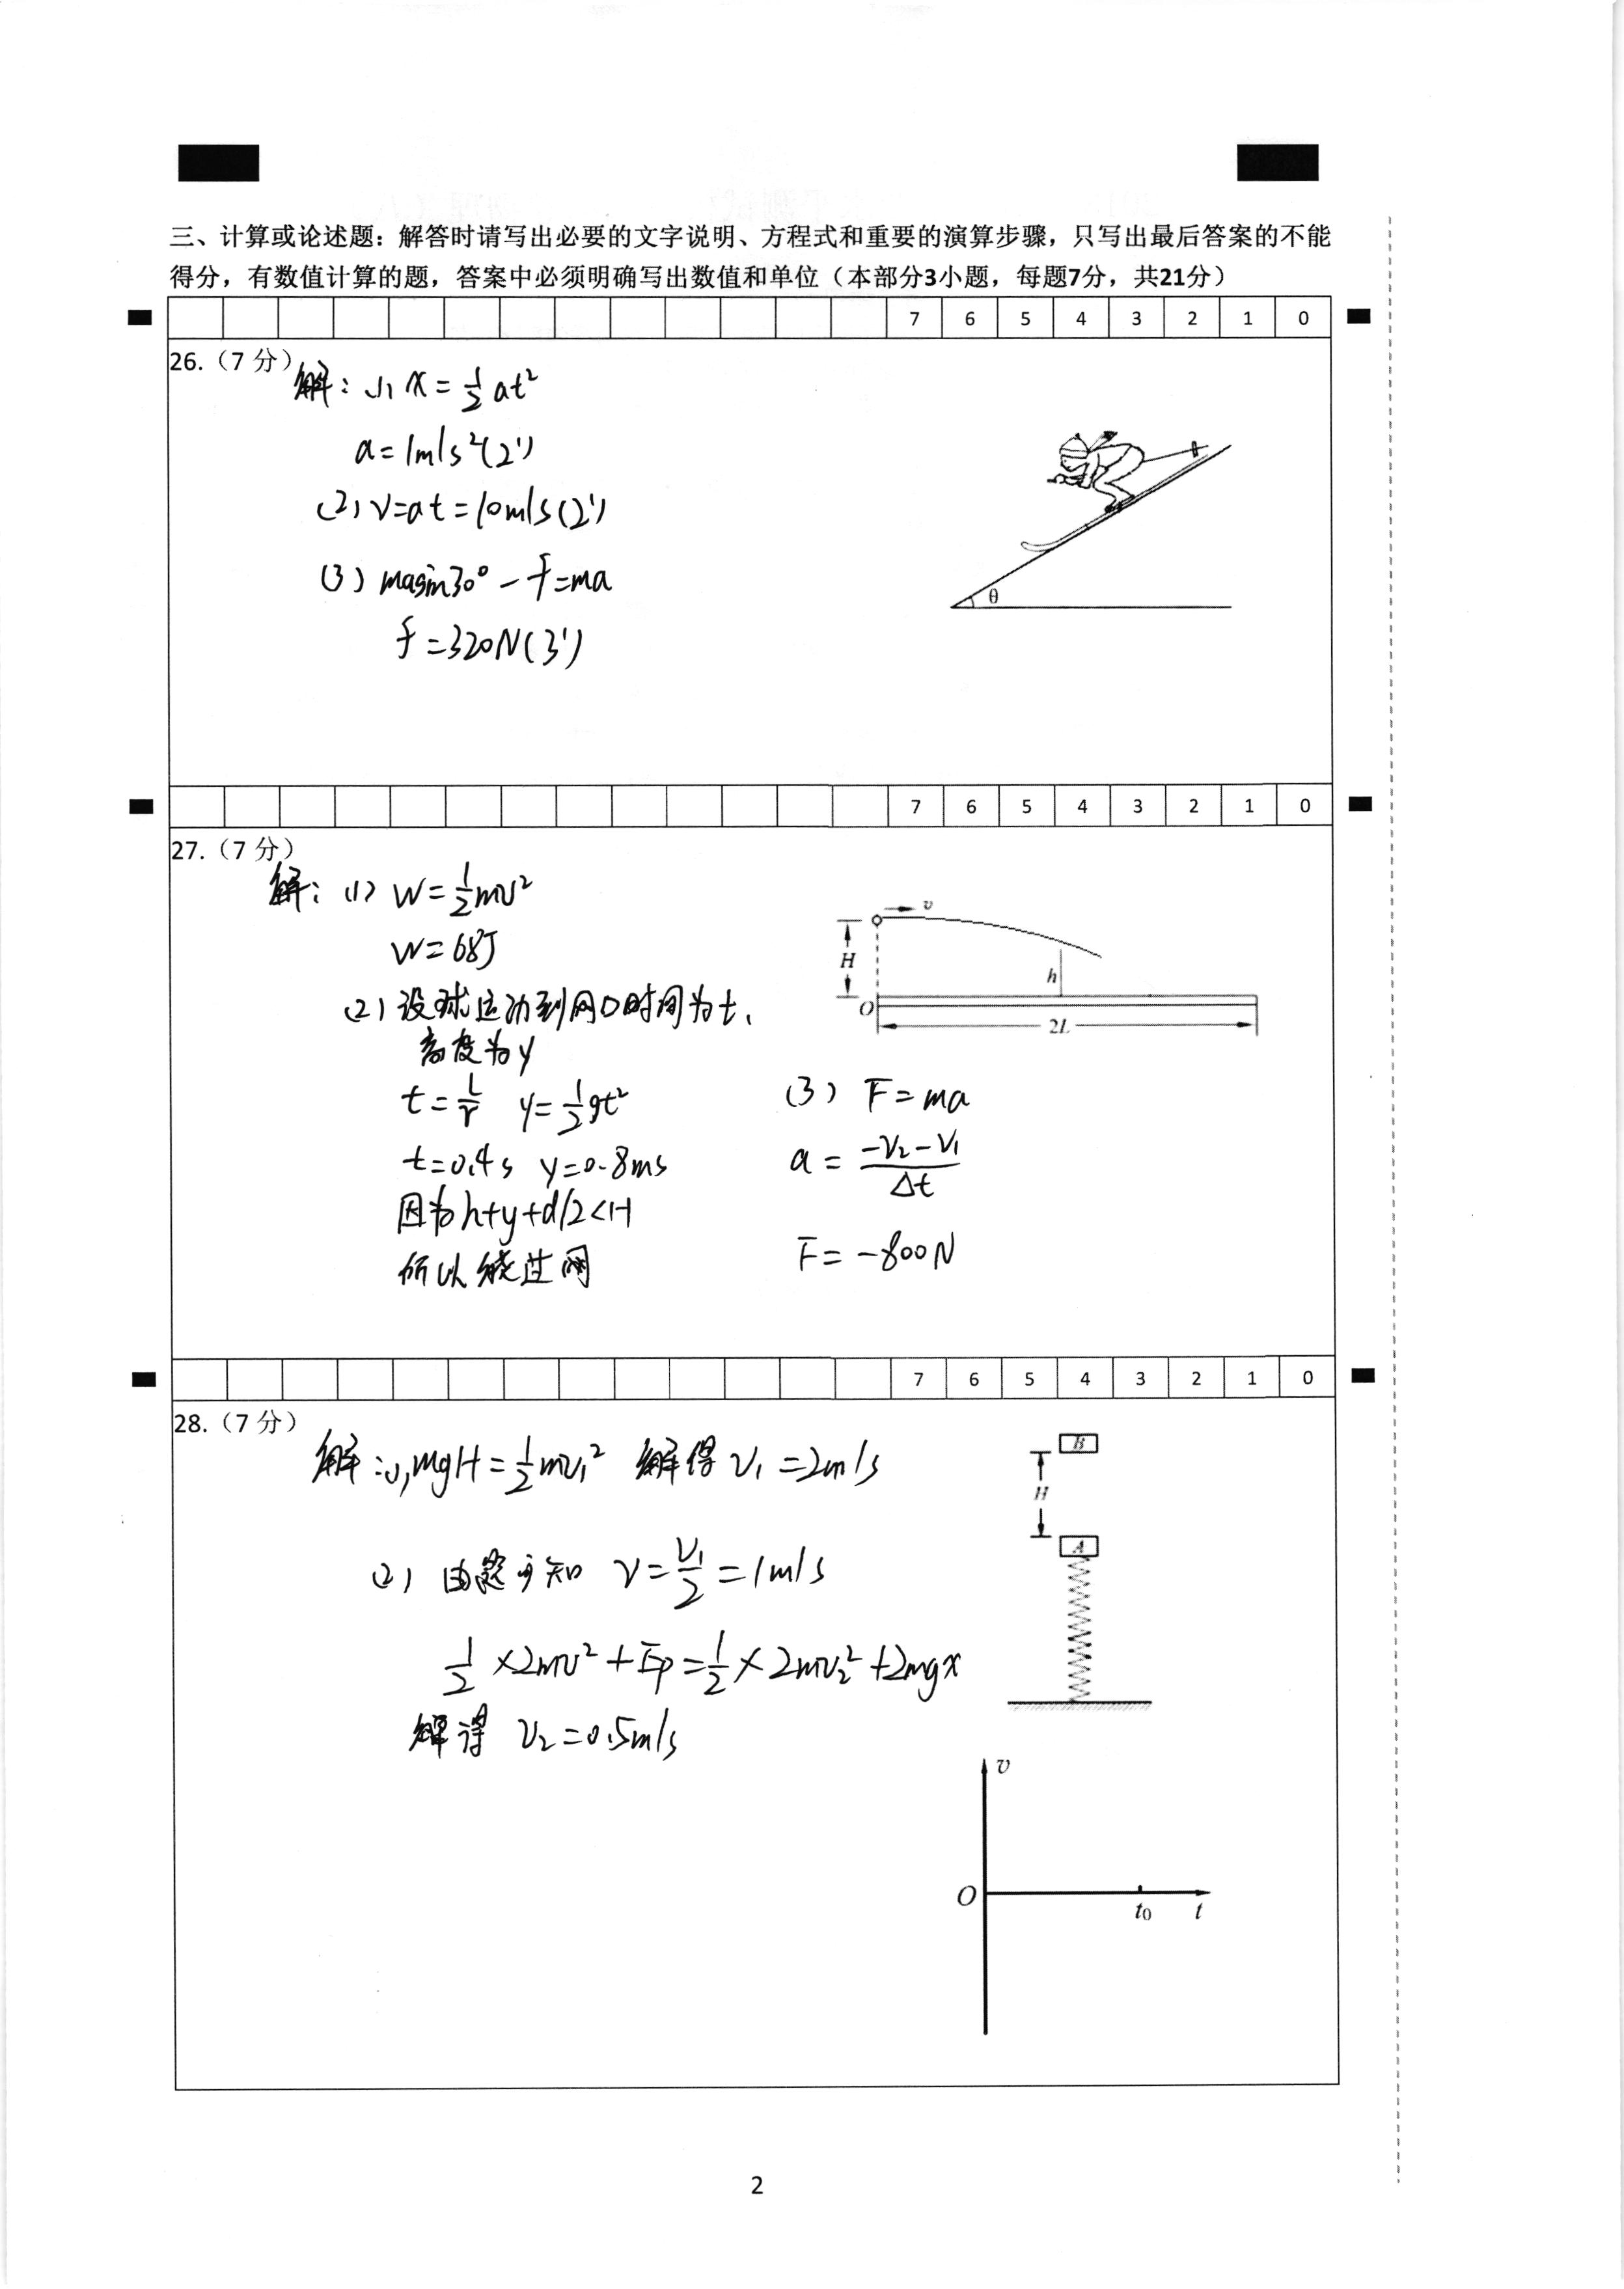 三、计算或论述题：解答时请写出必要的文字说明、方程式和重要的演算步骤，只写出最后答案的不能
得分，有数值计算的题，答案中必须明确写出数值和单位（本部分3小题，每题7分，共21分）
7 6 5 4 3 2 1 0
26.（7 分）
解：(1) x=½at²
a=1m/s²(2')
(2) v=at=10m/s(2')
(3) masin30°-f=ma
f=320N(3')
θ
7 6 5 4 3 2 1 0
27.（7 分）
解：(1) W=½mv²
W=68J
(2) 设球运动到网口时间为t、
高度为y
t=L/v y=½gt²
t=0.4s y=0.8ms
因为h+y+d/2<H
所以能过网
v
H
h
O
2L
(3) F=ma
a=(-v₂-v₁)/Δt
F=-800N
7 6 5 4 3 2 1 0
28.（7 分）
解：(1) mgH=½mv₁² 解得 v₁=2m/s
(2) 由题可知 v=v₁/2=1m/s
½×2mv²+Ep=½×2mv₂²+2mgx
解得 v₂=0.5m/s
B
H
A
v
O
t₀ t
2